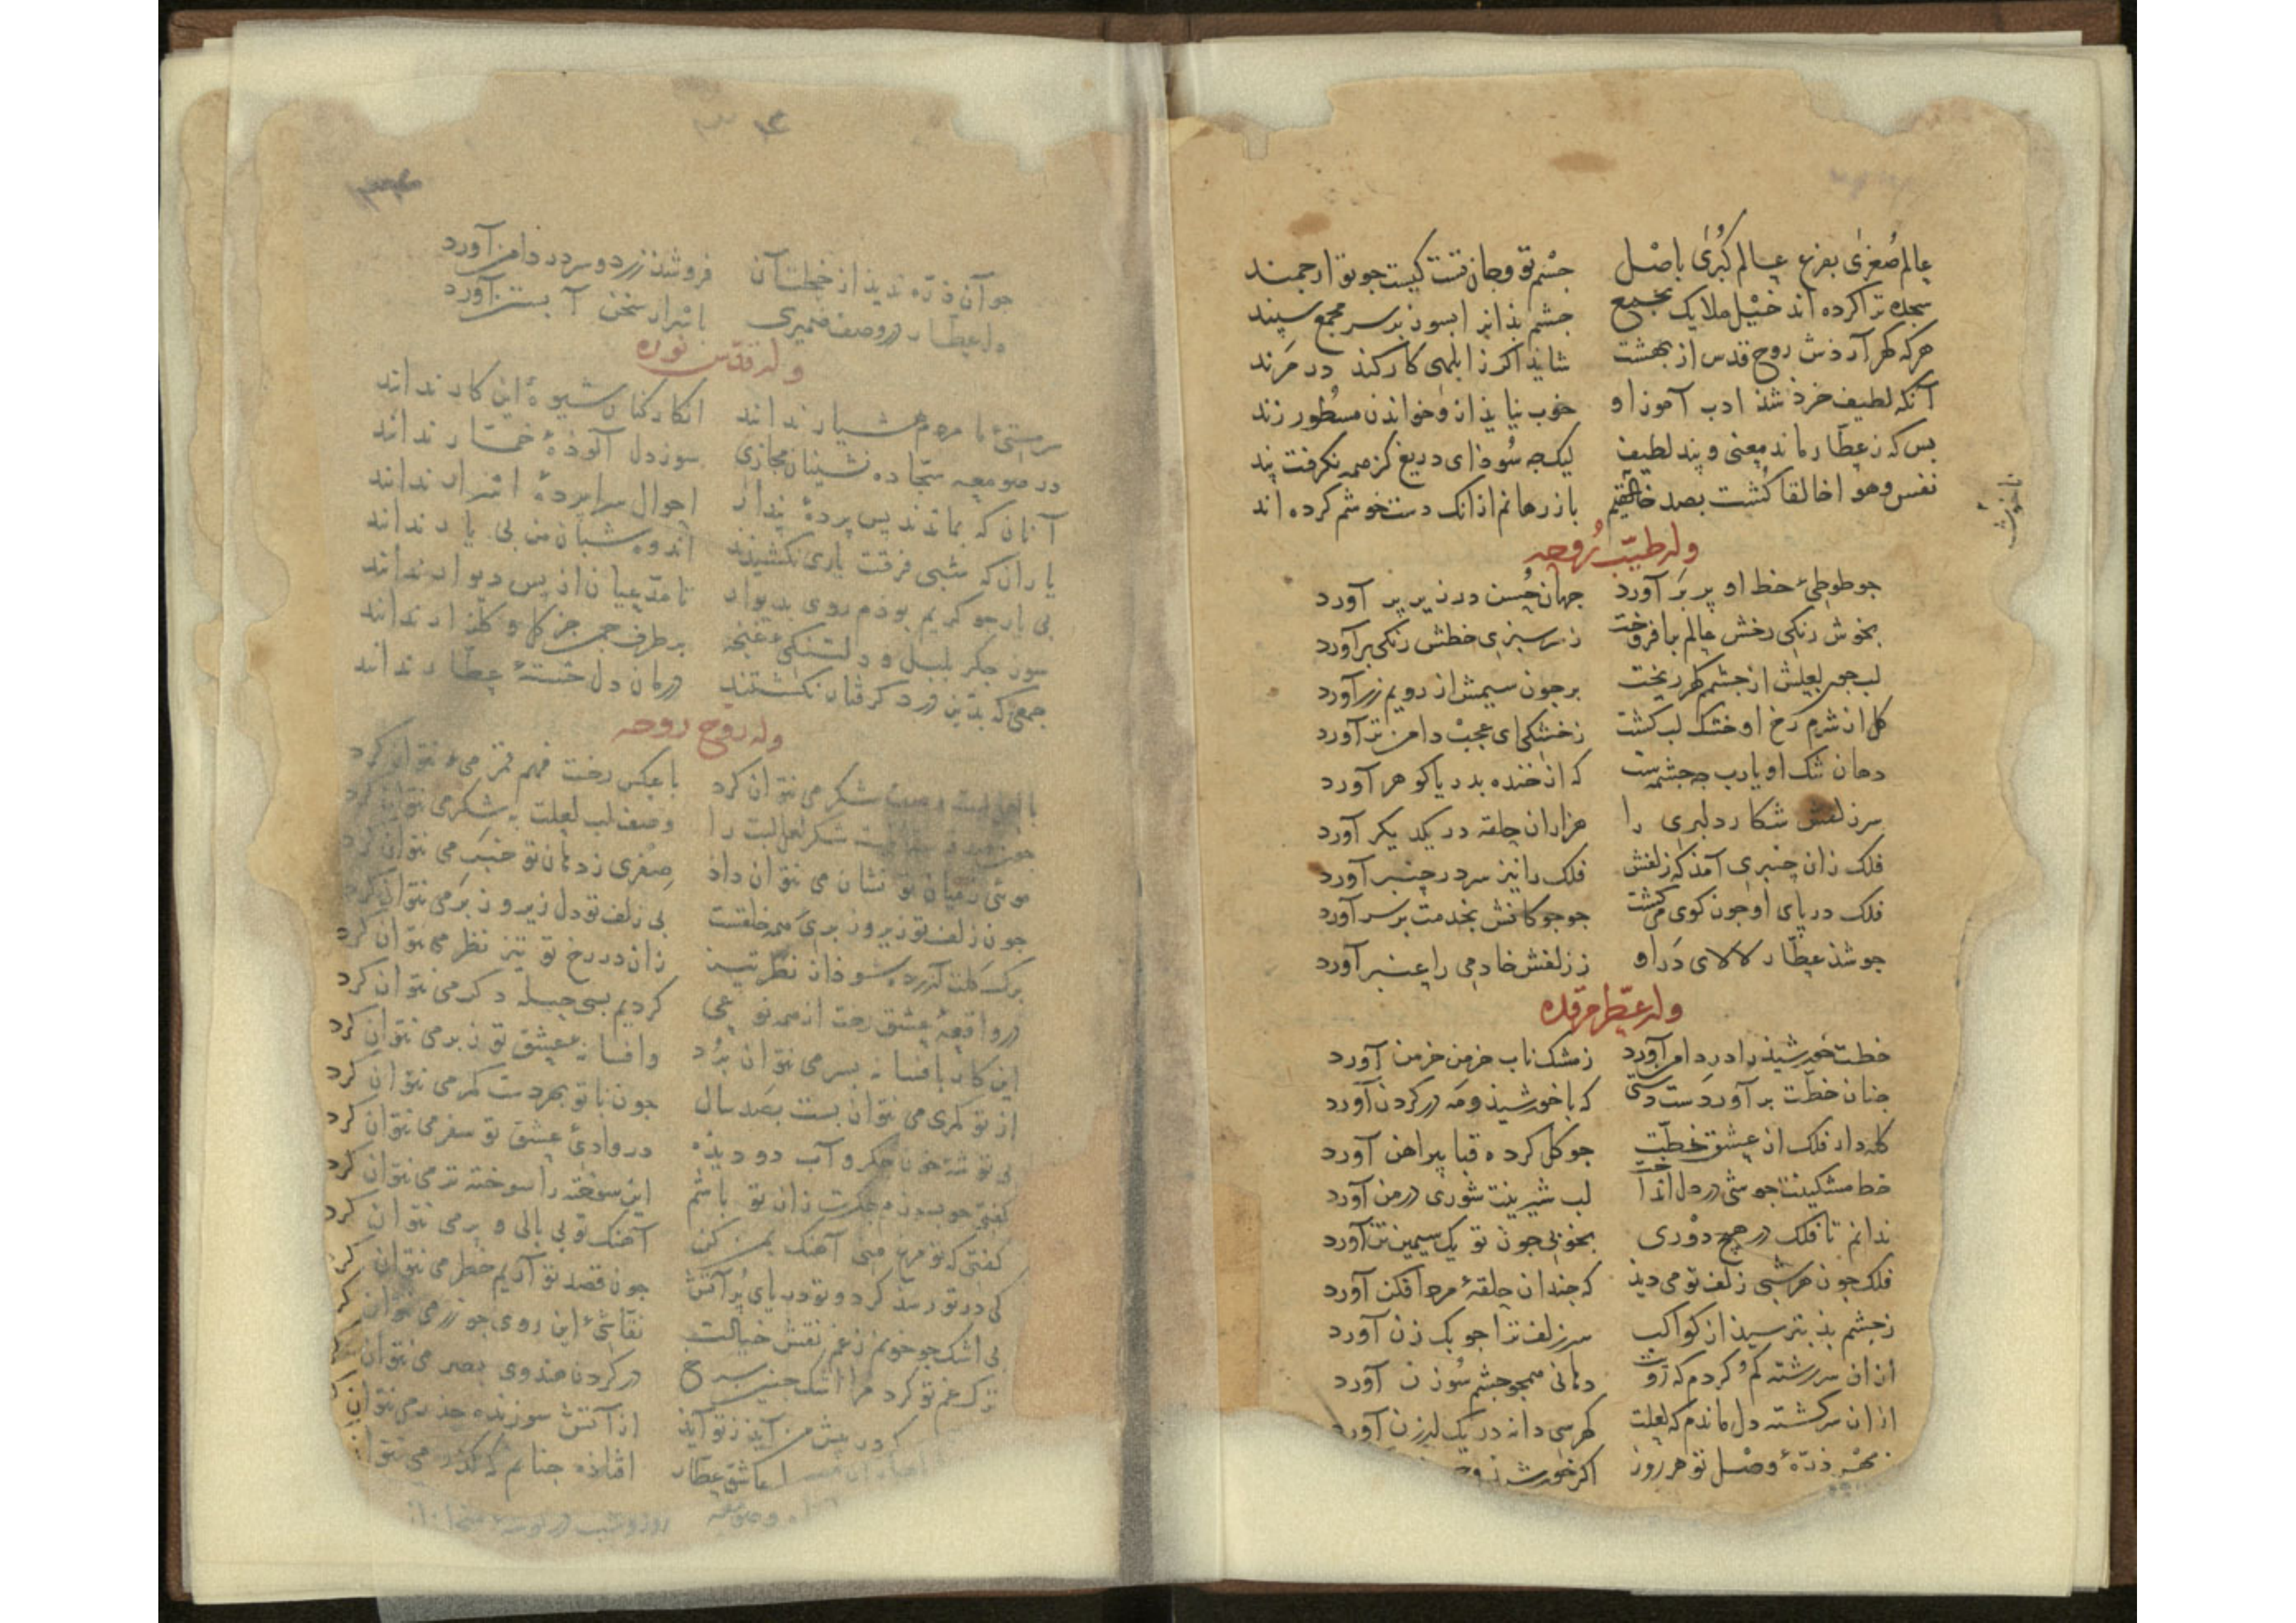 عالم صُغرٰی بفرع عالم کُبرٰی باصْل جشْم تو وجان تست کیست جو تو ارجمند
سجده ترا کرده اند خیْل ملایک بجمع جشم بذانرا بسوز بر سر مجمع سپند
هرکه کهر آرذش روح قدس از بهشت شایذ اکر ز ابلهی کار کند در مَرَند
آنکه لطیف خرذ شذ ادب آموز او خوب نیایذ ازو خواندن مسطور زند
بس که ز عطّار ماند معنی و پند لطیف لیک جه سُوذ ای دریغ کز همه نکرفت پند
نفس وهوا خالقا کُشت بصد حالتم باز رهانم از آنک دست خوشم کرده اند
وله طیّب رُوحه
جو طوطیٔ خط او پر برَ آورد جهان حُسن در زیر پر آورد
بخوش رنکی رخش عالم بیافروخت ز سرسبزی خطش رنکی برآورد
لب جو لعلش از جشمم کهر ریخت بر جون سیمش از رویم زر آورد
کل از شرم رخ او خشک لب کشت ز خشکی ای عجبْ دامن تر آورد
دهان تنک او یارب جه جشمه‌ست که از خنده بدریا کوهر آورد
سر زلفش شکار دلبری را هزاران حلقه در یکدیکر آورد
فلک زان جنبری آمذ که زلفش فلک را نیز سر در جنبر آورد
فلک در پای او جون کوی می‌کشت جو جوکانش بخدمت بر سر آورد
جو شذ عطّار لالای دَر او ز زلفش خادمی را عنبر آورد
وله عطّر مرقده
خطت خورشیذ را در دامن آورد ز مشک ناب خرمن خرمن آورد
جنان خطّت بر آورد دست دستی که با خورشیذ ومه در کردن آورد
کله دار فلک از عشق خطّت جو کل کرده قبا پیراهن آورد
خط مشکینت جوشی در دل انداخت لب شیرینت شوری در من آورد
ندانم تا فلک در هیج دوْری بخوبی جون تو یک سیمین تن آورد
فلک جون هر شبی زلف تو می دیذ که جندان حلقهٔ مرد افکن آورد
ز جشم بذ بترسیذ از کواکب سر زلف ترا جوبک زن آورد
از ان سر رشته کم کردم که رویت دهانی همجو جشم سُوزن آورد
از ان سرکشته دل ماندم که لعلت کهر سی دانه در یک ارزن آورد
بهْر ذرّهٔ وصْل تو هر روز اکر خورشیذ
ناخوش
جو آن ذرّه ندیذ از خجلت آن فرو شذ زرد و سر در دامن آورد
دل عطّار در وصف ضمیری اسرار سخن آبستن آورد
وله قدّس نوره
سرمستیٔ ما مردم هشیار ندانند انکار کنان شیوهٔ این کار ندانند
در صومعه سجّاده نشینان مجازی سوز دل آلوذهٔ خمّار ندانند
آنان که بماندند پس پردهٔ پندار احوال سراپردهٔ اسرار ندانند
یاران که شبی فرقت یاری نکشیذند اندوه شبان من بی یار ندانند
بی یار جو کریم بوذم روی بدیوار تا مدّعیان از پس دیوار ندانند
سوز جکر بلبل و دلتنکیٔ غنجه بر طرف جمن جز کل و کلزار ندانند
جمعی که بدین درد کرفتار نکشتند درمان دل خستهٔ عطّار ندانند
وله روّح روحه
با لب شکر می نتوان کرد با عکس رخت فهم قمر می نتوان کرد
شکر لعل لبت را وصف لب لعلت به شکر می نتوان کرد
موئی ز میان تو نشان می نتوان داذ صِفری ز دهان تو خبَر می نتوان کرد
جون زلف تو زیر و زبری همه خلقست بی زلف تو دل زیر و زبَر می نتوان کرد
برک کلت آزرده شوذ از نظر تیز زان در رخ تو تیز نظر می نتوان کرد
در واقعهٔ عشق رخت از همه نوعی کردیم بسی حیله دکر می نتوان کرد
این کار بافسانه بسر می نتوان بُرد وافسانهٔ عشق تو ز بر می نتوان کرد
از تو کمری می نتوان بست بصد سال جون با تو بهر دست کمر می نتوان کرد
بی توشهٔ خون جکر و آب دو دیذه در وادیٔ عشق تو سفر می نتوان کرد
کفتی جو بسوزم جکرت زان تو باشم این سوخته را سوخته تر می نتوان کرد
کفتی که تو مرغ منی آهنک بمن کن آهنک تو بی بالی و پر می نتوان کرد
کی در تو رسذ کرد و تو دریای پُر آتش جون قصد تو آریم خطر می نتوان کرد
بی اشک جو خونم ز غم نقش خیالت نقّاشیٔ این روی جو زر می نتوان
ترک غم تو کرد مرا اشک جنین سرخ در کردن هندوی بصر می نتوان
کر در پیش من آیذ ز تو آیذ از آتش سوزنده حذر می نتوان
عاشق عطّار افتاذه جنانم که کذر می نتوان
روز و شب در